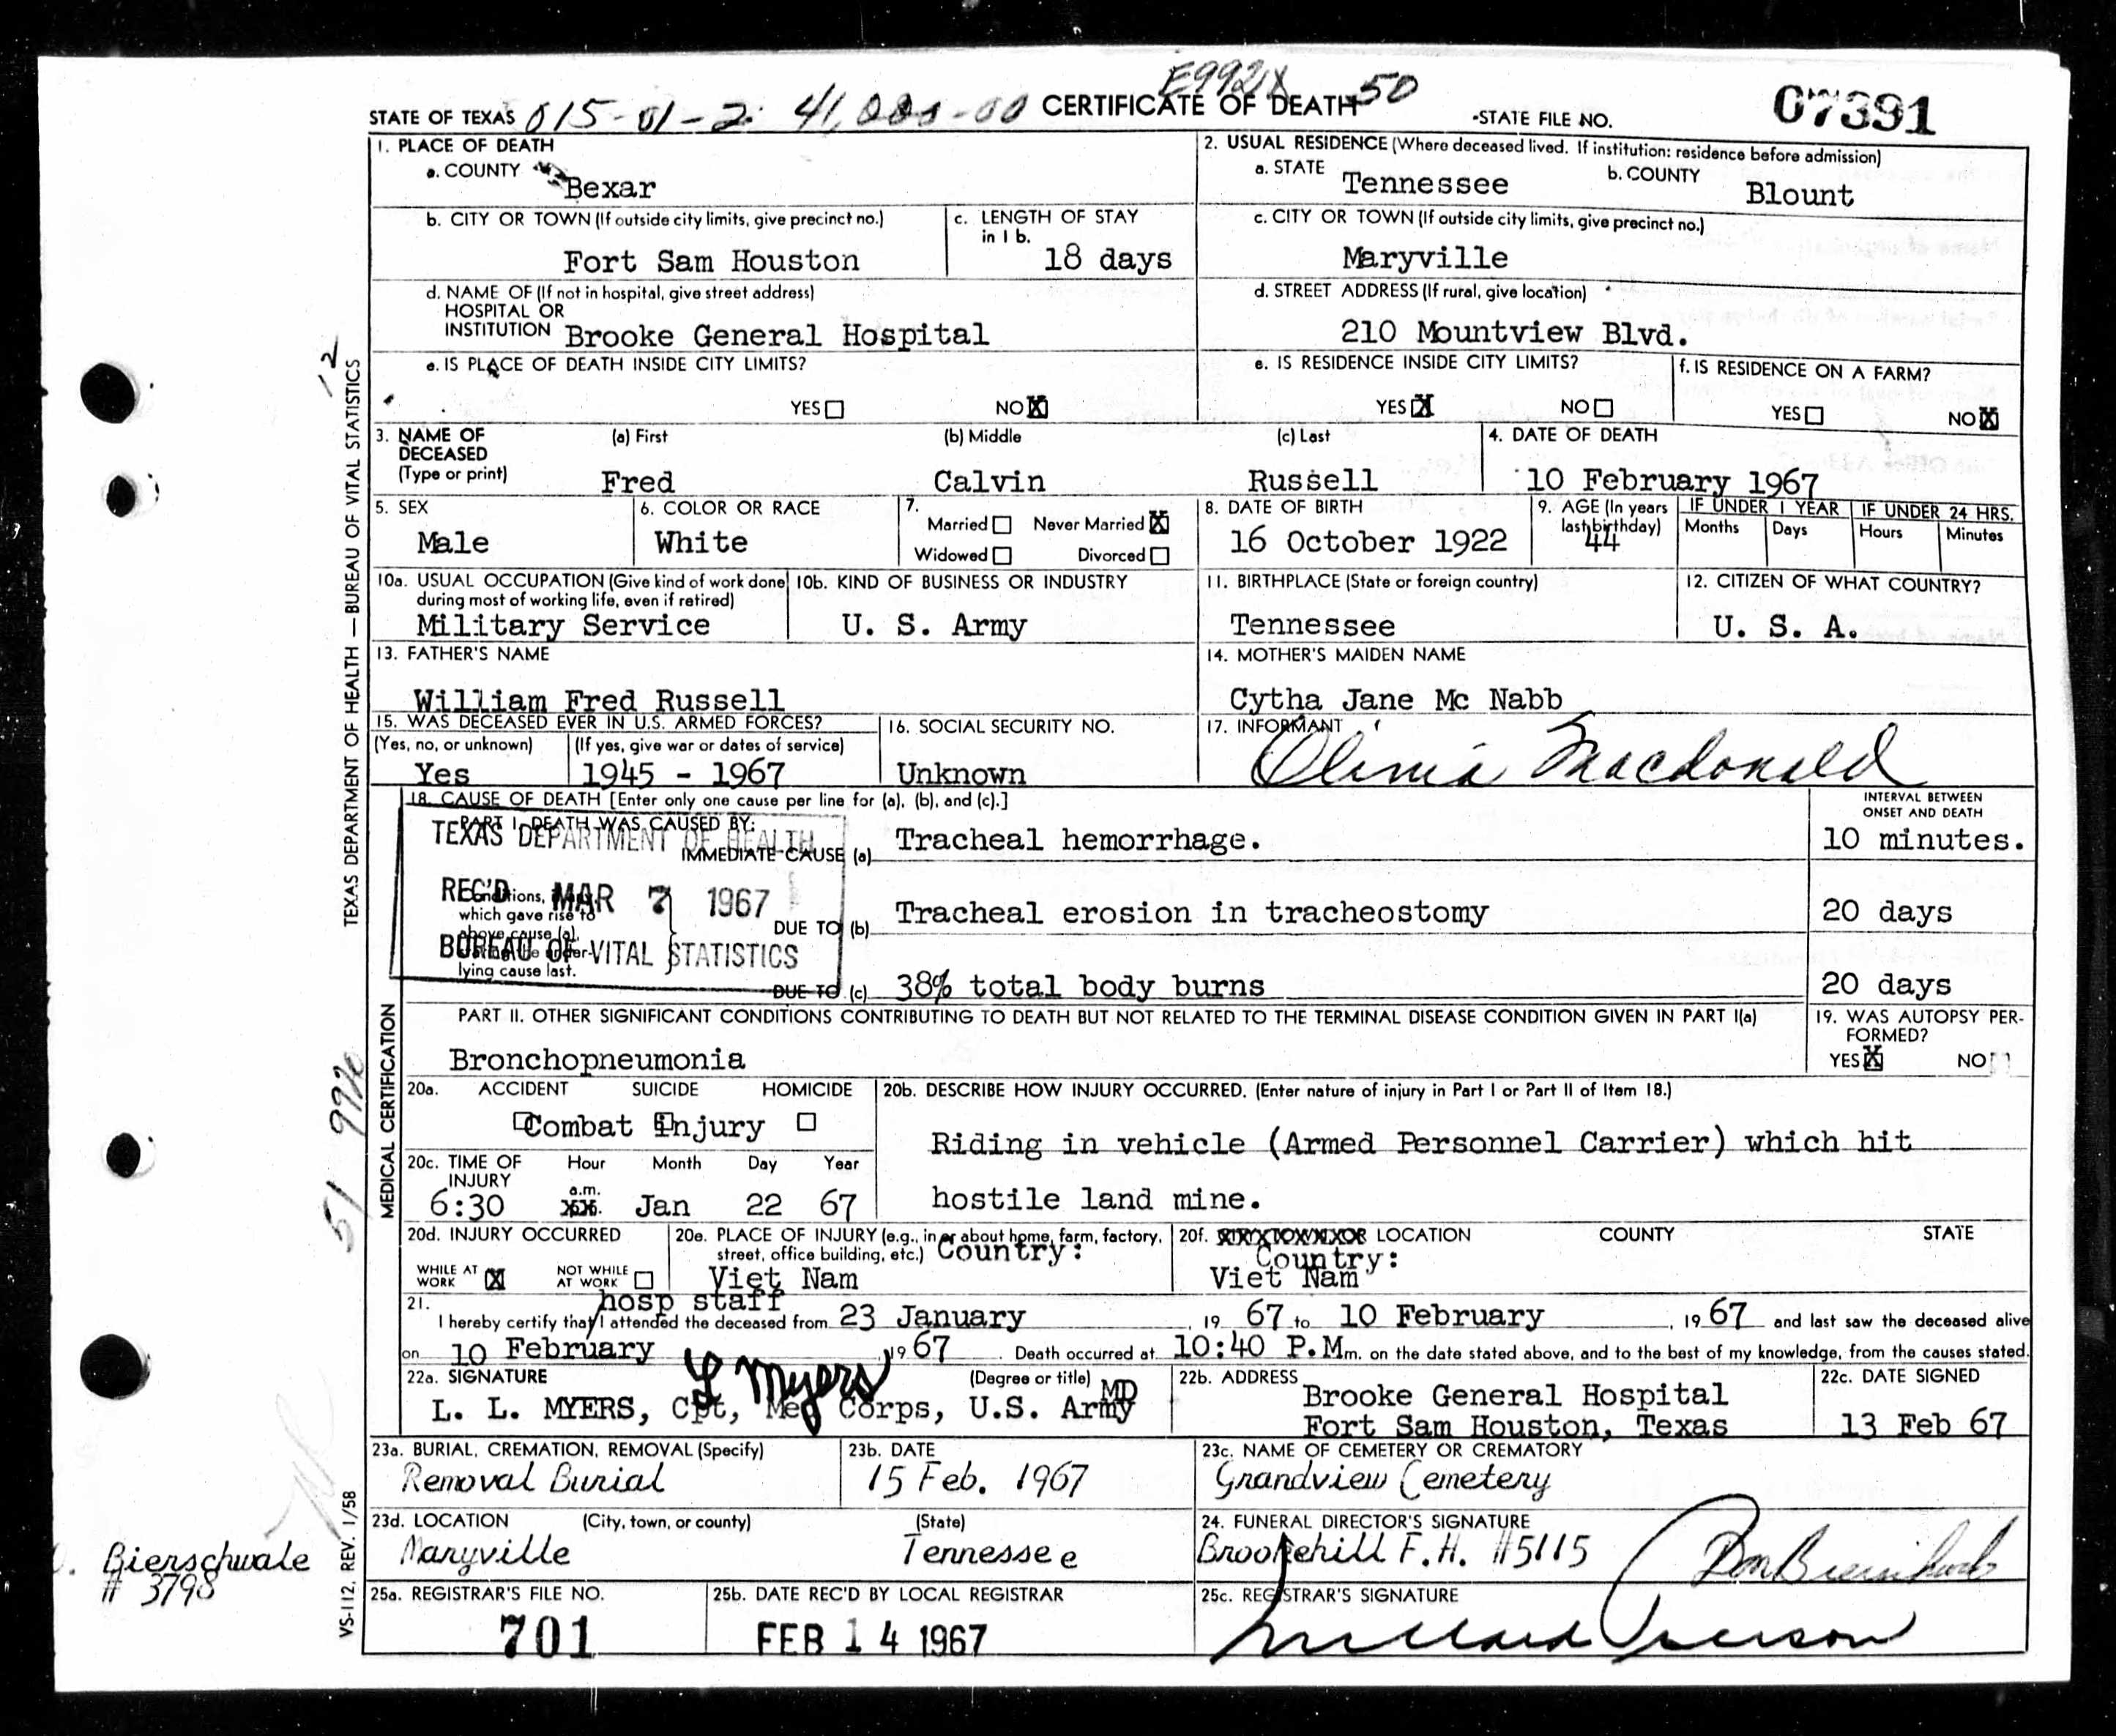 E992X
STATE OF TEXAS 015-01-2 41,000-00 CERTIFICATE OF DEATH 50 STATE FILE NO. 07391
1. PLACE OF DEATH
a. COUNTY Bexar
b. CITY OR TOWN (If outside city limits, give precinct no.)
Fort Sam Houston
c. LENGTH OF STAY
in 1 b.
18 days
d. NAME OF (If not in hospital, give street address)
HOSPITAL OR
INSTITUTION Brooke General Hospital
e. IS PLACE OF DEATH INSIDE CITY LIMITS?
YES NO X
2. USUAL RESIDENCE (Where deceased lived. If institution: residence before admission)
a. STATE Tennessee b. COUNTY Blount
c. CITY OR TOWN (If outside city limits, give precinct no.)
Maryville
d. STREET ADDRESS (If rural, give location)
210 Mountview Blvd.
e. IS RESIDENCE INSIDE CITY LIMITS?
YES X NO
f. IS RESIDENCE ON A FARM?
YES NO X
3. NAME OF DECEASED (Type or print)
(a) First (b) Middle (c) Last
Fred Calvin Russell
4. DATE OF DEATH
10 February 1967
5. SEX
Male
6. COLOR OR RACE
White
7.
Married Never Married X
Widowed Divorced
8. DATE OF BIRTH
16 October 1922
9. AGE (In years
last birthday)
44
IF UNDER 1 YEAR IF UNDER 24 HRS.
Months Days Hours Minutes
10a. USUAL OCCUPATION (Give kind of work done
during most of working life, even if retired)
Military Service
10b. KIND OF BUSINESS OR INDUSTRY
U. S. Army
11. BIRTHPLACE (State or foreign country)
Tennessee
12. CITIZEN OF WHAT COUNTRY?
U. S. A.
13. FATHER'S NAME
William Fred Russell
14. MOTHER'S MAIDEN NAME
Cytha Jane Mc Nabb
15. WAS DECEASED EVER IN U.S. ARMED FORCES?
(Yes, no, or unknown) (If yes, give war or dates of service)
Yes 1945 - 1967
16. SOCIAL SECURITY NO.
Unknown
17. INFORMANT
Olivia Macdonald
18. CAUSE OF DEATH [Enter only one cause per line for (a), (b), and (c).]
INTERVAL BETWEEN
ONSET AND DEATH
PART I. DEATH WAS CAUSED BY:
IMMEDIATE CAUSE (a) Tracheal hemorrhage. 10 minutes.
Conditions,
which gave rise to
above cause (a),
lying cause last.
DUE TO (b) Tracheal erosion in tracheostomy 20 days
DUE TO (c) 38% total body burns 20 days
TEXAS DEPARTMENT OF HEALTH
REC'D MAR 7 1967
BUREAU OF VITAL STATISTICS
PART II. OTHER SIGNIFICANT CONDITIONS CONTRIBUTING TO DEATH BUT NOT RELATED TO THE TERMINAL DISEASE CONDITION GIVEN IN PART I(a)
Bronchopneumonia
19. WAS AUTOPSY PER-
FORMED?
YES X NO
20a. ACCIDENT SUICIDE HOMICIDE
Combat Injury
20b. DESCRIBE HOW INJURY OCCURRED. (Enter nature of injury in Part I or Part II of Item 18.)
Riding in vehicle (Armed Personnel Carrier) which hit
hostile land mine.
20c. TIME OF INJURY Hour Month Day Year
6:30 a.m. Jan 22 67
20d. INJURY OCCURRED
WHILE AT WORK X NOT WHILE AT WORK
20e. PLACE OF INJURY (e.g., in or about home, farm, factory,
street, office building, etc.) Country:
Viet Nam
20f. LOCATION COUNTY STATE
Country:
Viet Nam
21.
hosp staff
I hereby certify that/I attended the deceased from 23 January, 19 67 to 10 February, 19 67 and last saw the deceased alive
on 10 February, 19 67. Death occurred at 10:40 P.M m. on the date stated above, and to the best of my knowledge, from the causes stated.
22a. SIGNATURE (Degree or title)
L Myers
MD
L. L. MYERS, Cpt, Med Corps, U.S. Army
22b. ADDRESS Brooke General Hospital
Fort Sam Houston, Texas
22c. DATE SIGNED
13 Feb 67
23a. BURIAL, CREMATION, REMOVAL (Specify)
Removal Burial
23b. DATE
15 Feb. 1967
23c. NAME OF CEMETERY OR CREMATORY
Grandview Cemetery
23d. LOCATION (City, town, or county) (State)
Maryville Tennessee
24. FUNERAL DIRECTOR'S SIGNATURE
Brookehill F.H. #5115
25a. REGISTRAR'S FILE NO.
701
25b. DATE REC'D BY LOCAL REGISTRAR
FEB 14 1967
25c. REGISTRAR'S SIGNATURE
TEXAS DEPARTMENT OF HEALTH — BUREAU OF VITAL STATISTICS
12
MEDICAL CERTIFICATION
VS-112, REV. 1/58
Bierschwale
# 3798